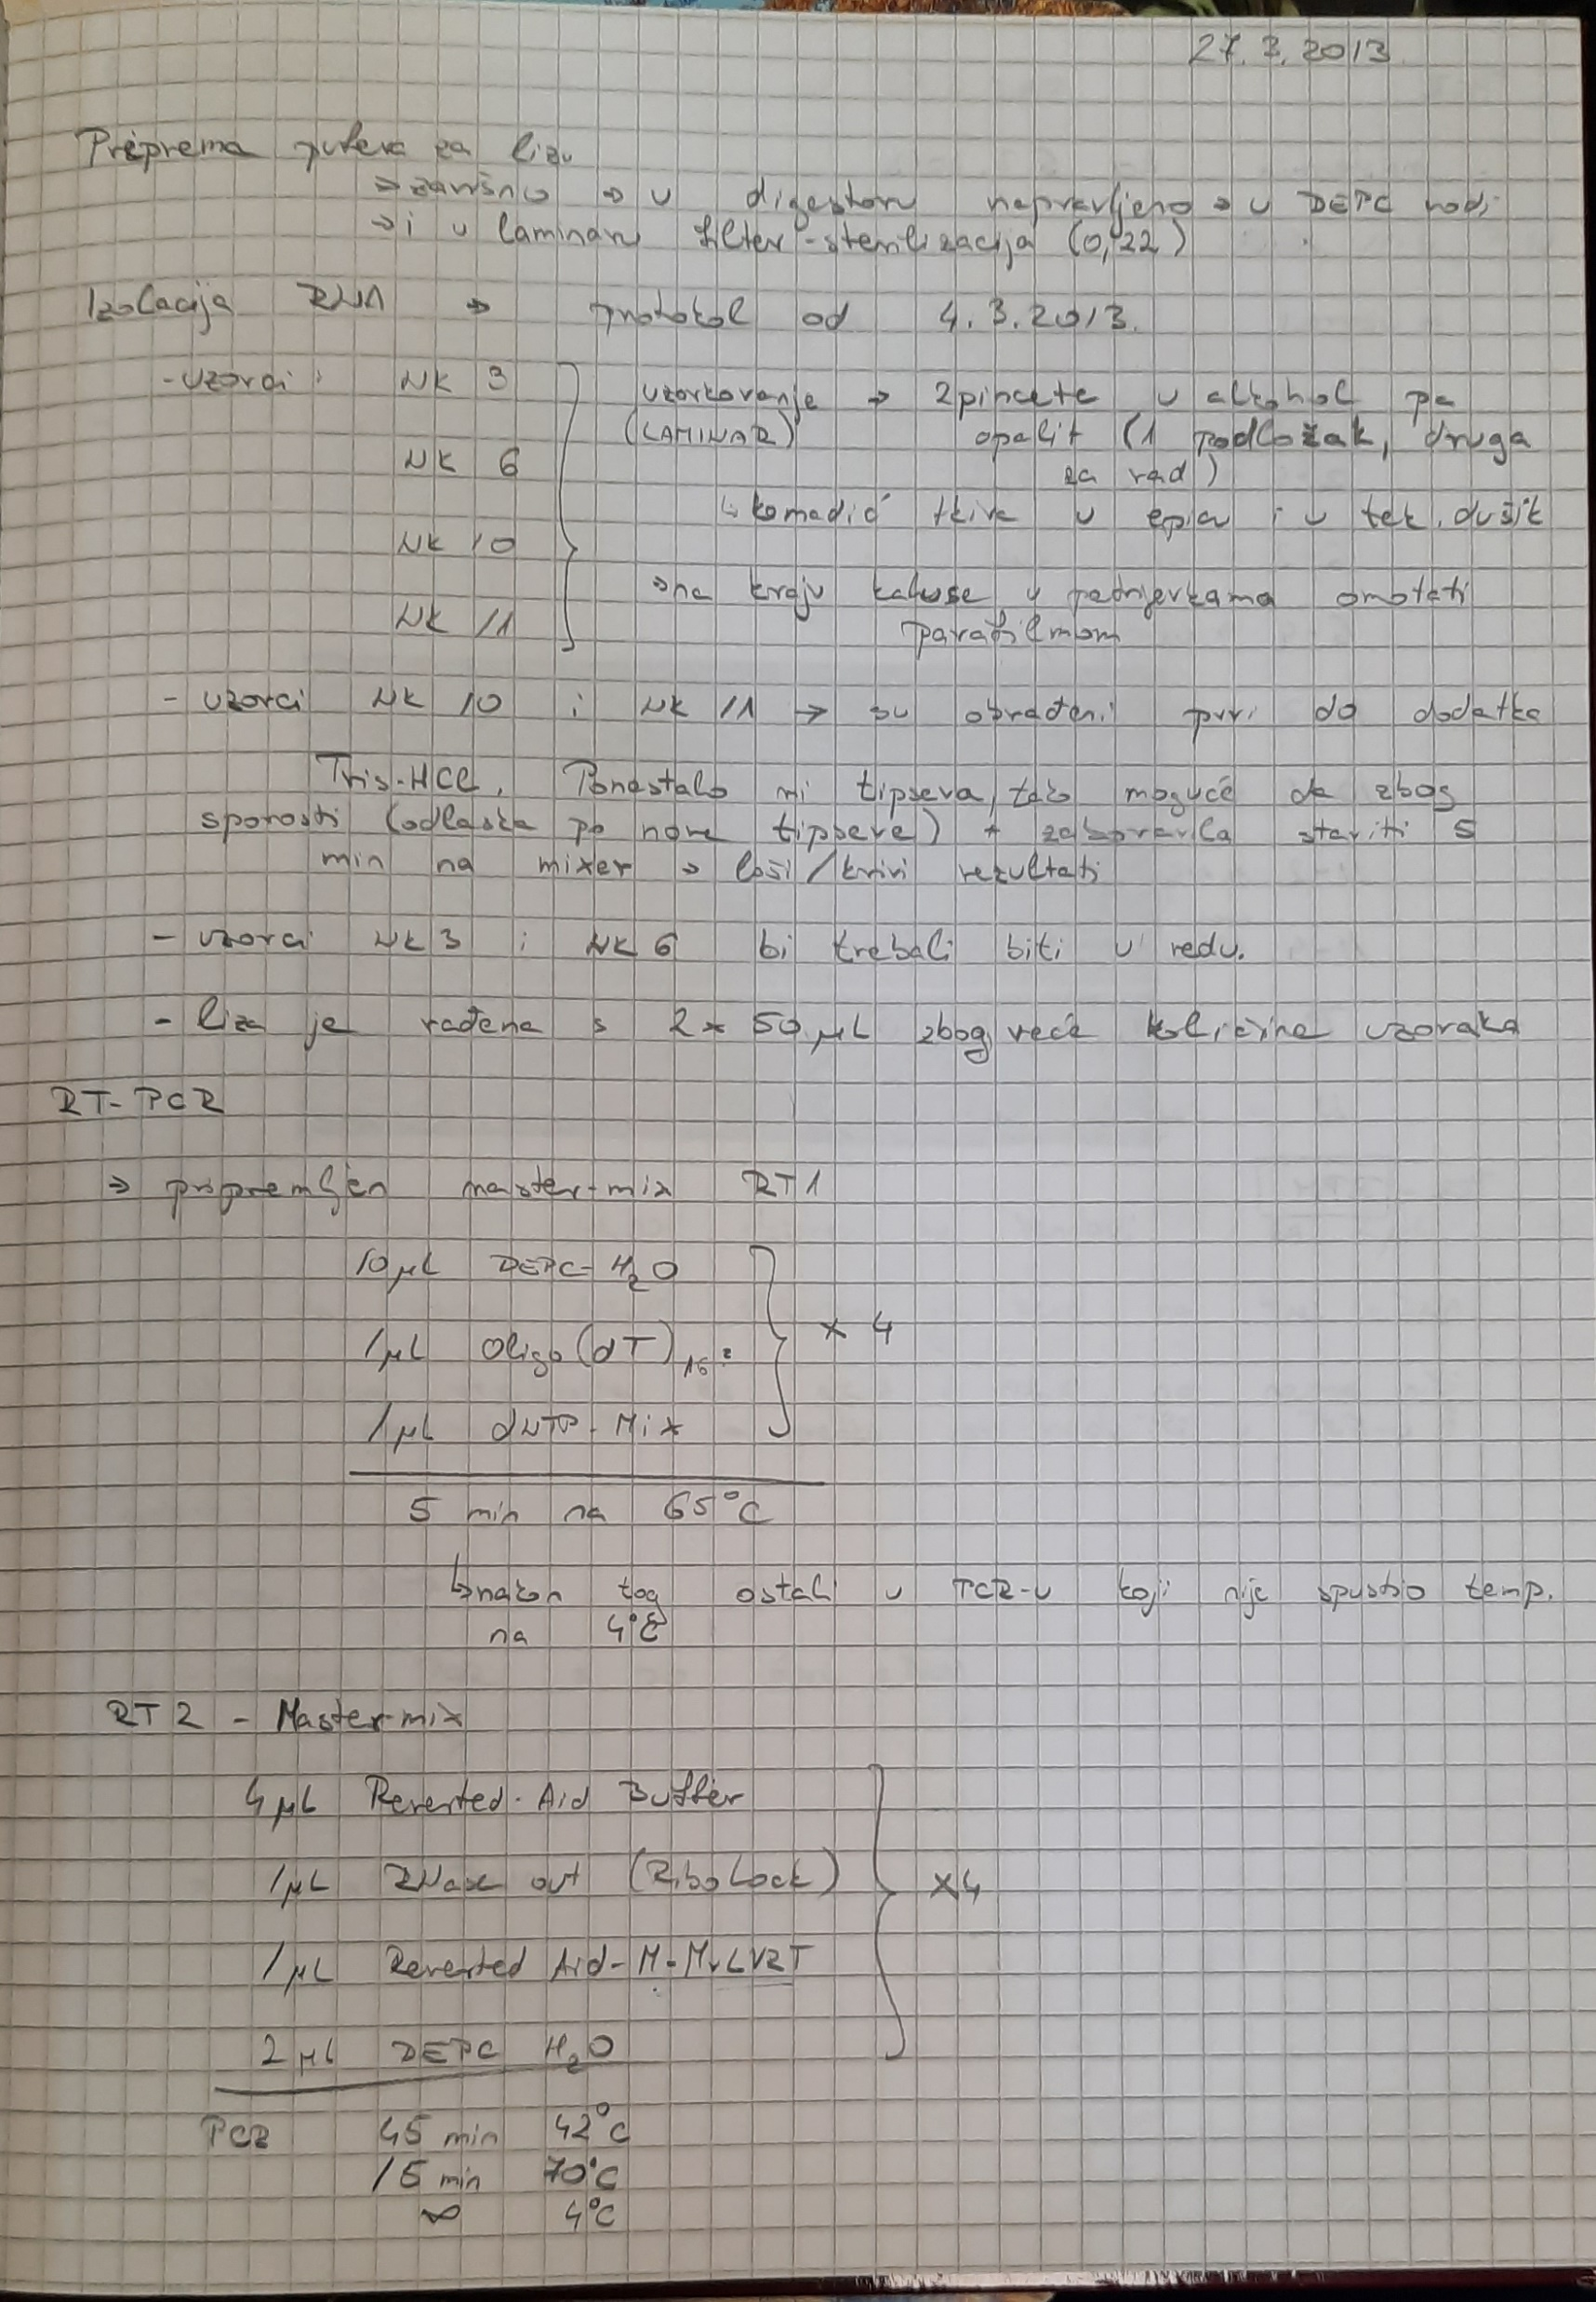 27.3.2013
Priprema pufera za lizu
→ završno → u digestoru napravljeno → u DEPC vodi
→ i u laminaru filter-sterilizacija (0,22)
Izolacija RNA → protokol od 4.3.2013.
- uzorci: NK 3
NK 6
NK 10
NK 11
uzorkovanje → 2 pincete u alkohol pa
(LAMINAR) opalit (1 podložak, druga
za rad)
↳ komadić tkiva u epicu i u tek. dušik
→ na kraju kaluse u petrijevkama omotati
parafilmom
- uzorci NK 10 i NK 11 → su obrađeni prvi do dodatka
Tris-HCl. Ponestalo mi tipseva, tako moguće da zbog
sporosti (odlaska po nove tipseve) + zaboravila staviti 5
min na mixer → loši/krivi rezultati
- uzorci NK 3 i NK 6 bi trebali biti u redu.
- liza je rađena s 2 x 50 μL zbog veće količine uzoraka
RT-PCR
→ pripremljen master-mix RT1
10 μL DEPC-H2O
1 μL Oligo(dT)16?
1 μL dNTP-Mix
x 4
5 min na 65°C
↳ nakon tog ostali u PCR-u koji nije spustio temp.
na 4°C
RT2 - Master-mix
4 μL Reverted-Aid Buffer
1 μL RNase out (RiboLock)
1 μL Reverted Aid-M-MuLVRT
2 μL DEPC H2O
x4
PCR 45 min 42°C
15 min 70°C
∞ 4°C